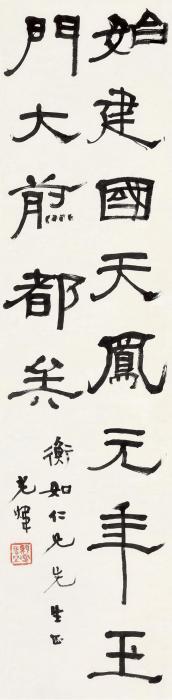 始建國天鳳元年玉
門大煎都兵
衡如仁兄先生正
光煒